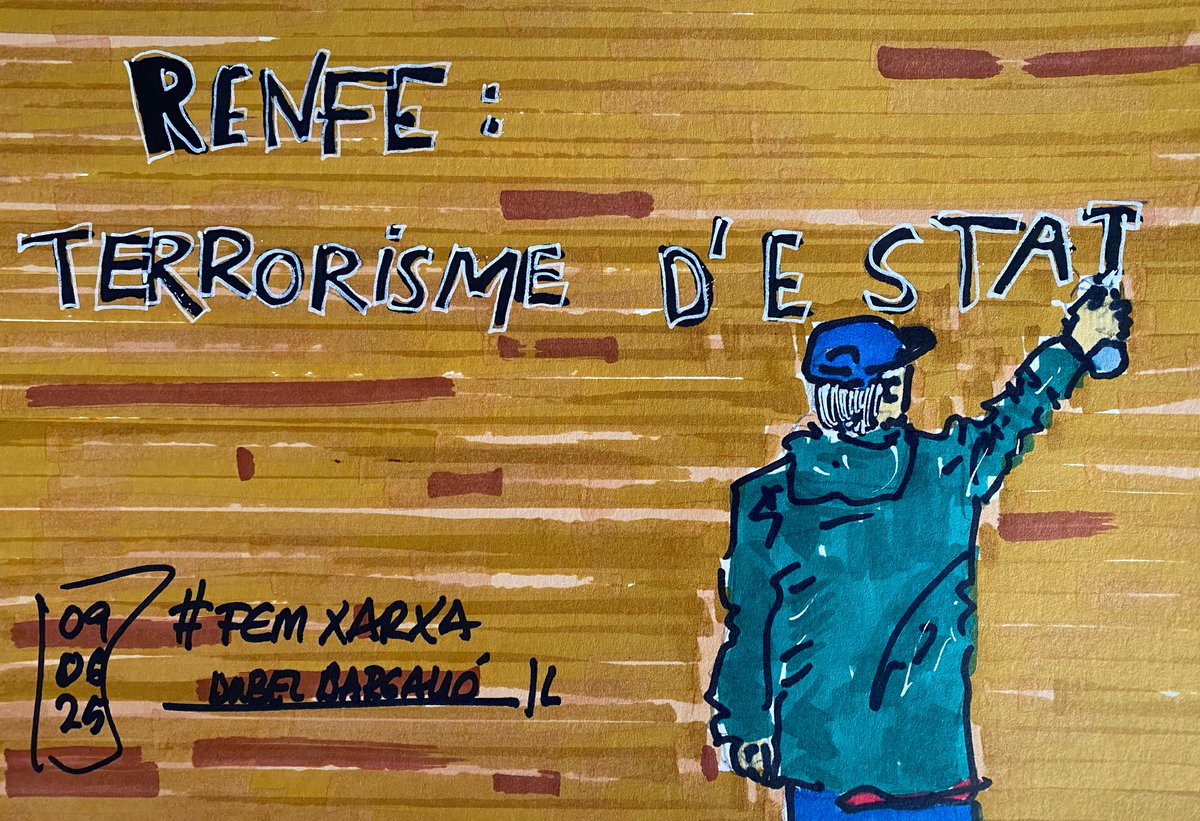 RENFE :
TERRORISME D'ESTAT
09
06
25
#FEM XARXA
BARGALLÓ